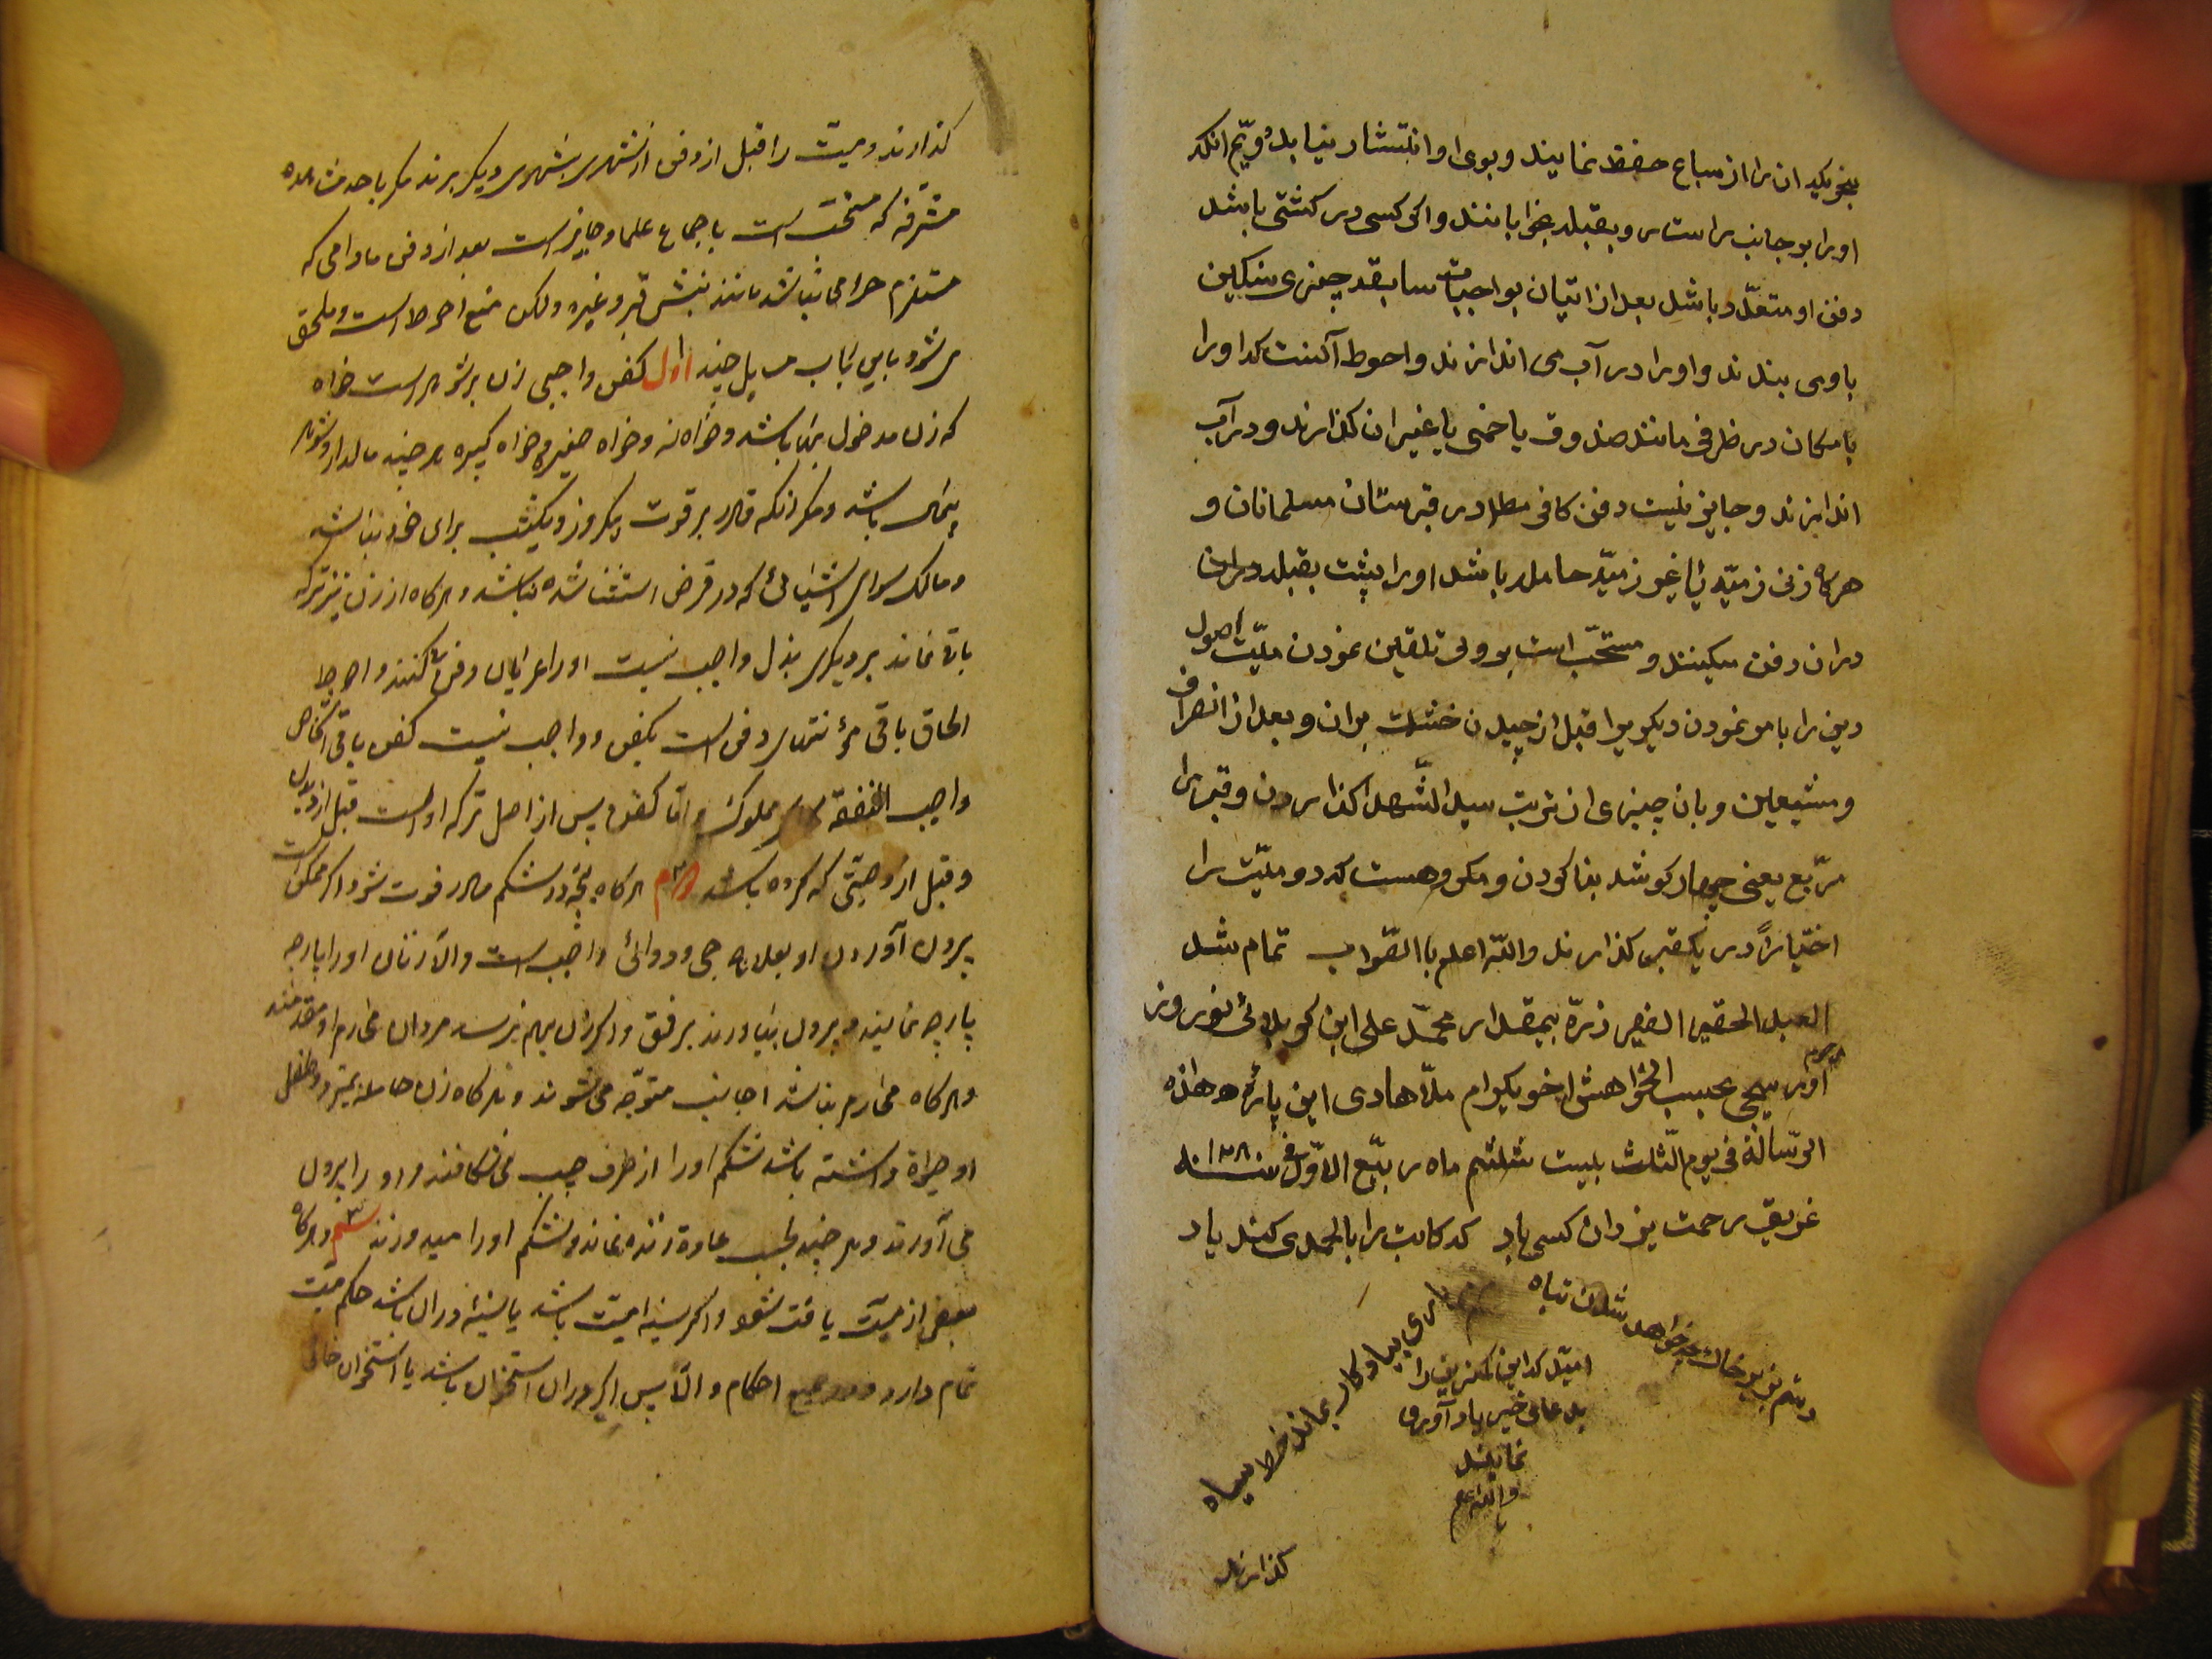 بنحویکه ان را از سباع حفظ نمایند و بوی او انتشار نیابد دویّم انکه
او را بر جانب راست رو بقبله بخوابانند و اکر کسی در کشتی باشد
دفن او متعذّر باشد بعد از اتیان بواجبات سابقه چیزی سنکین
باو می بندند و او را در آب می اندازند و احوط آنست که او را
بامکان در ظرفی مانند صندوق یا خمی یا غیر ان کذارند و در آب
اندازند و جایز نیست دفن کافر مطلقا در قبرستان مسلمانان و
هرکاه زنی ذمیّه یا غیر ذمیّه حامله باشد او را پشت بقبله دران
دران دفن میکنند و مستحّب است بر ولی تلقین نمودن میّت اصول
دین را بامر نمودن دیکریرا قبل از چیدن خشت بران و بعد از انصراف
و مشیعین و بان چیزی از تربت سید الشّهدا کذاردن و قبر را
مربّع یعنی چهار کوشه بنا کردن و مکروهست که دو میّت را
اختیاراً در یکقبر کذارند واللّه اعلم باالصّواب تمام شد
العبد الحقیر الفقیر ذرّه بیمقدار محمّد علی ابن کربلائی نوروز
مرحوم
آوریجی بحسب الخواهش اخویکرام ملّا هادی این پاره هذه
الرّسالة فی یوم الثّلث بیست ششم ماه ربیّع الاوّل فی سنه ۱۲۸
غریق رحمت یزدان کسی باد که کاتب را بالحمدی کند یاد
دستم بزیر خاک چه خواهد شدن تباه
باری بیادکار بماند خط سیاه
امیّد که این کمترین را
بدعای خیر یاد آوری
نمایند
واللّه اعلم
کذارند
کذارند و میّت را قبل از دفن از شهری بشهری دیکر برند مکر باحد مشاهده
مشرفه که مستحّب است باجماع علما و جایز است بعد از دفن مادامی که
مستلزم حرامی نباشد مانند نبش قبر و غیره ولکن منع احوط است و ملحق
میشود باین باب مسایل چند اول کفن واجبی زن بر شوهر است خواه
که زن مدخول بها باشد و خواه نه و خواه صغیره و خواه کبیره هر چند مالدار و شوهر
پریشان باشد و مکر انکه قادر بر قوت یکروز و یکشب برای خود نباشد
و مالک سوای اشیائی که در قرض استثنا شده نباشد و هرکاه از زن نیز ترکه
باقی نماند بر دیکری بذل واجب نیست او را عریان دفن کنند و احوط
الحاق باقی مؤنتهای دفن است بکفن و واجب نیست کفن باقی اشخاص
واجب النفقه مملوک و امّا کفن پس از اصل ترکه او است قبل از دیون
و قبل از وصیّتی که کرده باشد دویّم هرکاه بچّه در شکم مادر فوت شود اکر ممکن است
بیرون آوردن او بعلاجی و دوائی واجب است و الّا زنان او را پارچه
پارچه نمایند و بیرون بیاورند برفق و اکر زنان بهم نرسد مردان محارم او مقدمند
و هرکاه محارم نباشد اجانب متوجّه میشوند و هرکاه زن حامله بمیرد و طفل
او حیواة داشته باشد شکم او را از طرف چپ میشکافند و او را بیرون
می آورند و هر چند بحسب عادة زنده نماند و شکم او را میدوزند سیّم هرکاه
بعضی از میّت یافت شود و اکر سینه میّت باشد یا سینه در ان باشد حکم میّت
تمام دارد در جمیع احکام و الّا پس اکر دران استخوان باشد یا استخوان خالی